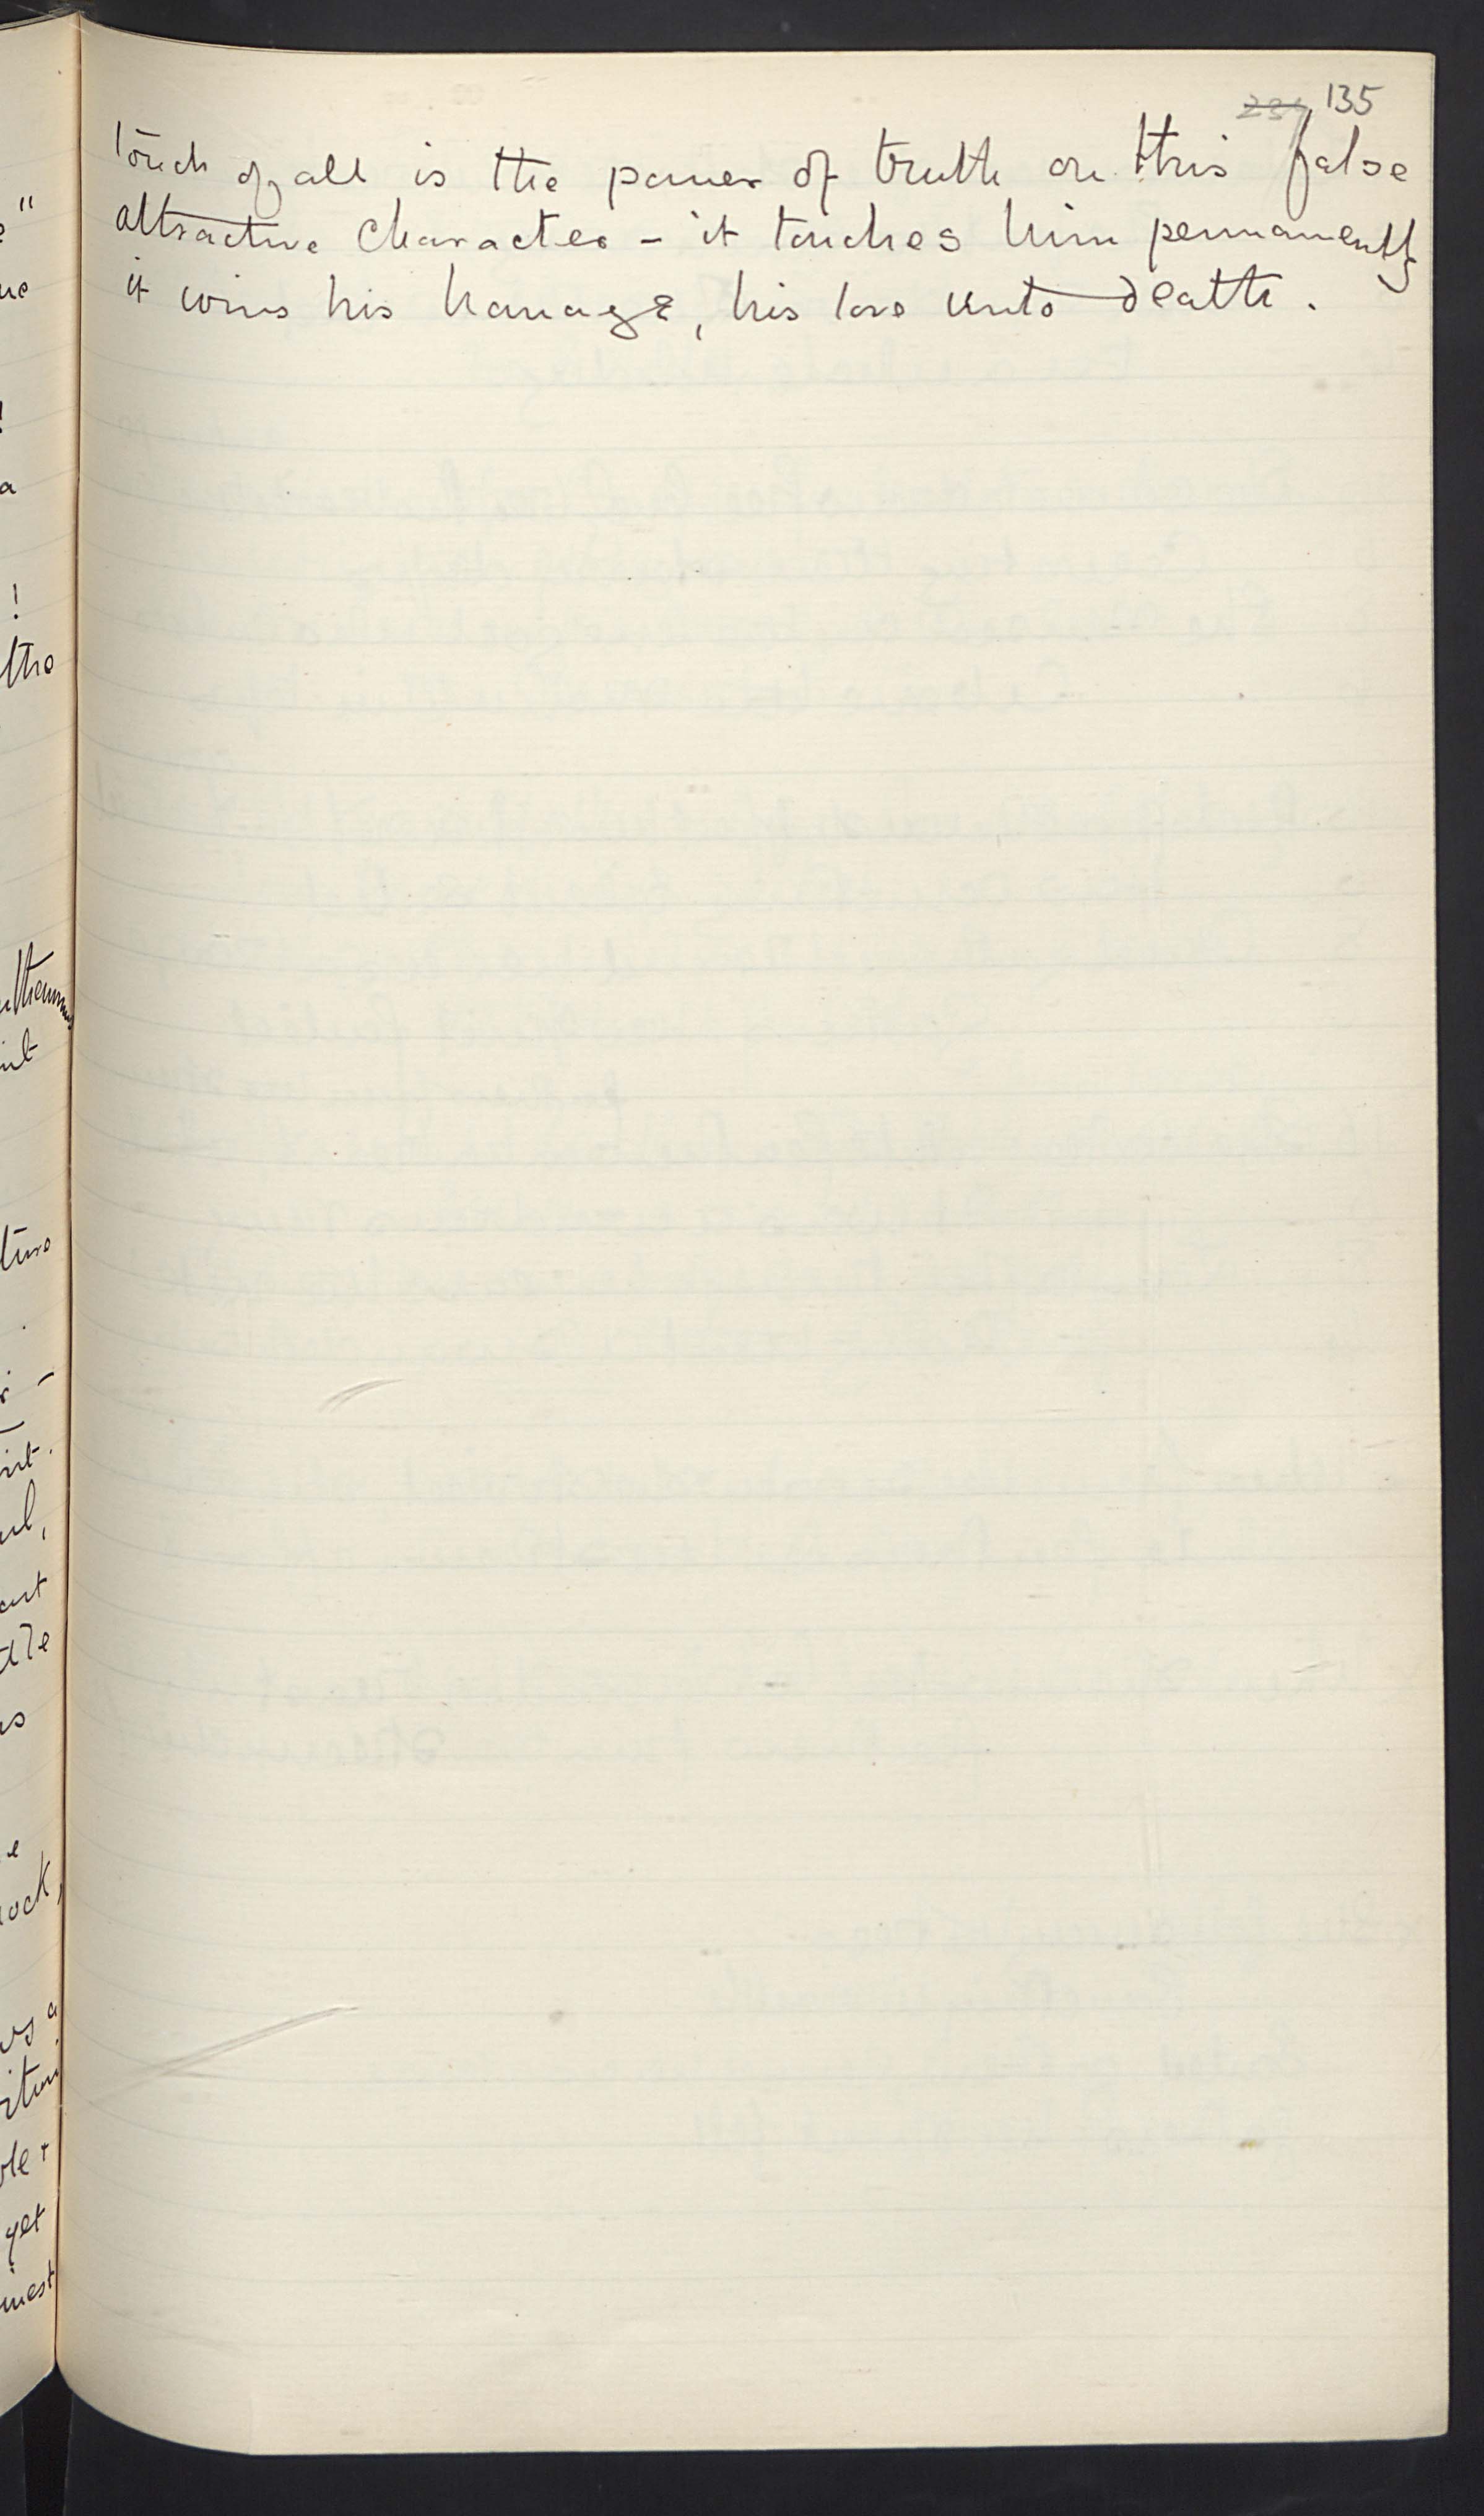 135
touch of all is the power of truth on this false
attractive character - it touches him permanently
it wins his homage, his love unto death.